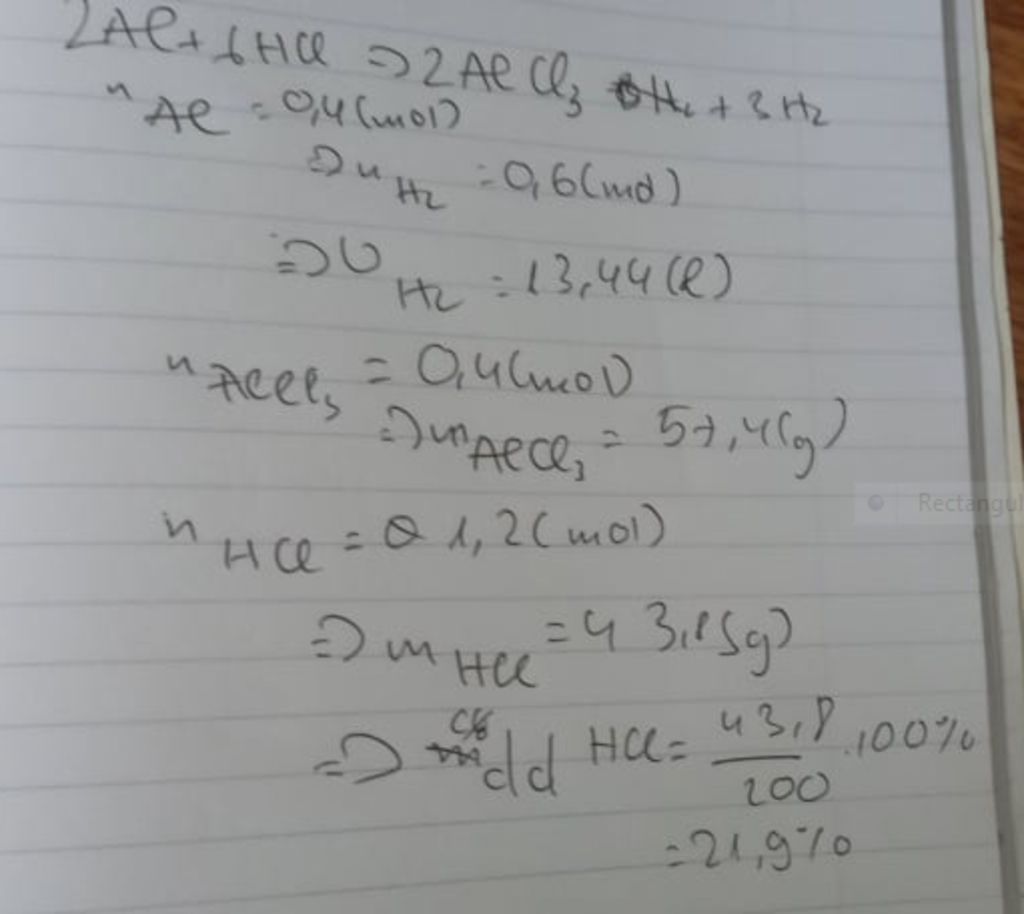 2Al + 6HCl => 2AlCl3 + 3H2
nAl = 0,4(mol)
=> nH2 = 0,6(mol)
=> VH2 = 13,44(l)
nAlCl3 = 0,4(mol)
=> mAlCl3 = 57,4(g)
nHCl = 1,2(mol)
Rectangul
=> mHCl = 43,8(g)
=> C% dd HCl = 43,8/200 .100%
= 21,9%